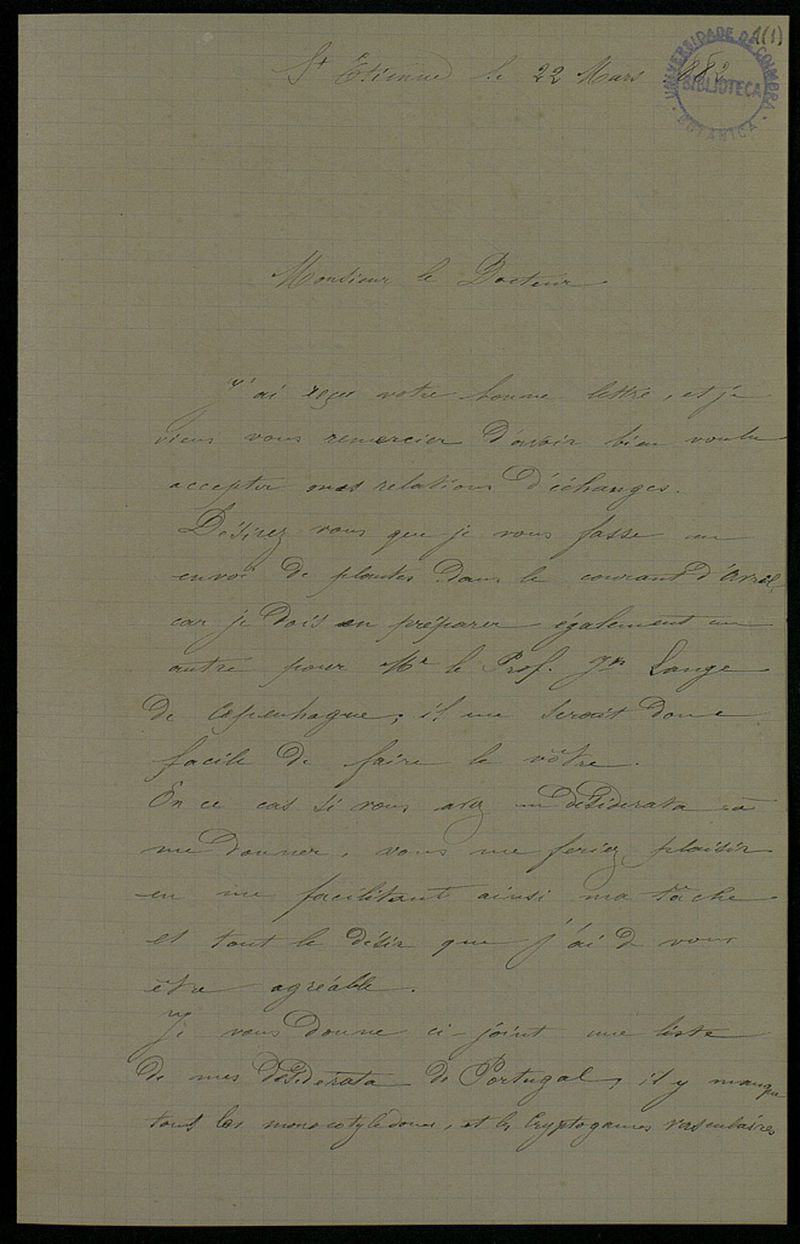 A(1)
UNIVERSIDADE DE COIMBRA
BIBLIOTECA
BOTANICA
St Etienne le 22 Mars 1882
Monsieur le Docteur
J'ai reçu votre bonne lettre, et je
viens vous remercier d'avoir bien voulu
accepter mes relations d'échanges.
Désirez vous que je vous fasse un
envoi de plantes dans le courant d'avril,
car je dois en préparer également un
autre pour Mr le Prof. Lange
de Copenhague; il me serait donc
facile de faire le vôtre.
En ce cas si vous avez un désidérata à
me donner, vous me feriez plaisir
en me facilitant ainsi ma tâche
et tout le désir que j'ai de vous
être agréable.
Je vous donne ci-joint une liste
de mes désidérata de Portugal, il y manque
tous les monocotylédones, et les Cryptogames vasculaires